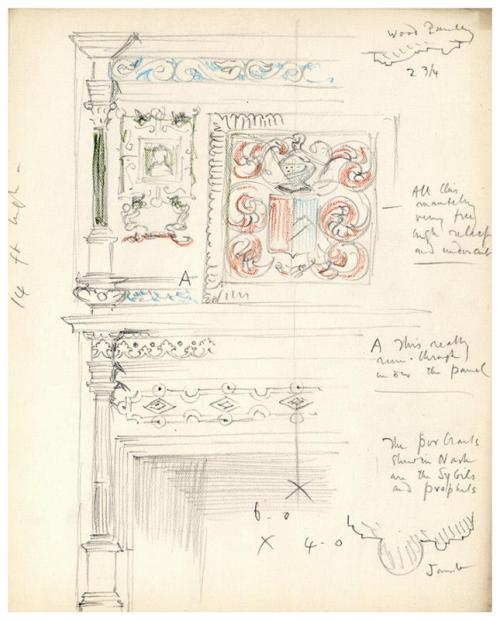 Wood Panelling
2 3/4
14 ft high -
All this
mantel
very free
high relief
and undercut
A
A This really
runs through
in one the panel
The portraits
shewn in Nash
are the Sybils
and prophets
6 - 0
X
X 4 - 0
Jamb